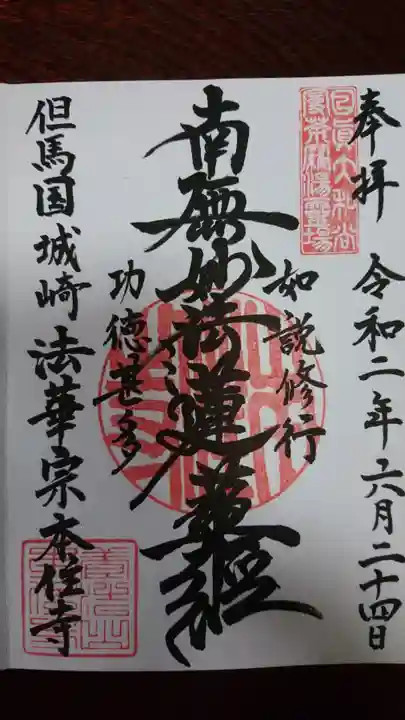 奉拝
令和二年六月二十四日
如説修行
南無妙法蓮華経
功徳甚多
但馬国城崎法華宗本住寺